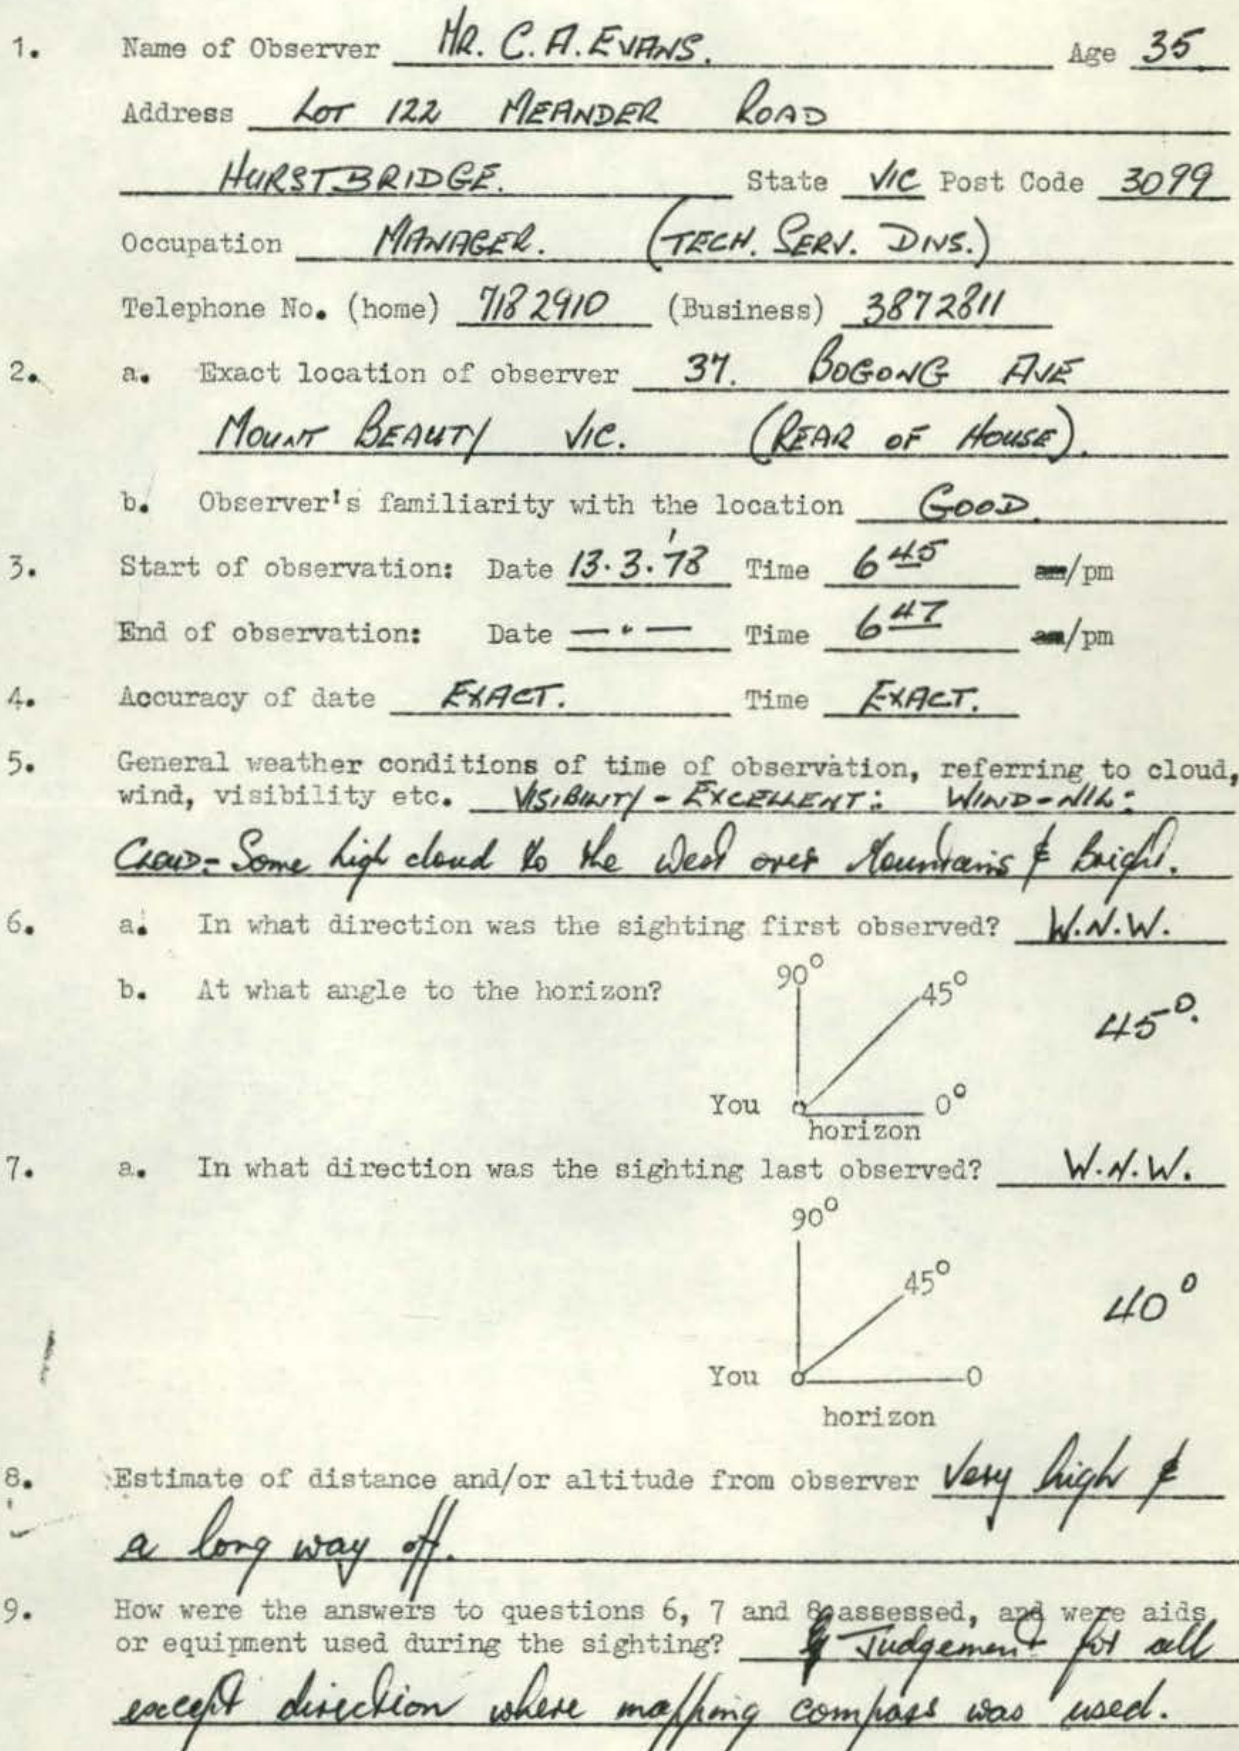 1. Name of Observer MR. C.A. EVANS. Age 35
Address LOT 122 MEANDER ROAD
HURSTBRIDGE. State VIC Post Code 3099
Occupation MANAGER. (TECH. SERV. DIVS.)
Telephone No. (home) 7182910 (Business) 3872811
2. a. Exact location of observer 37. BOGONG AVE
MOUNT BEAUTY VIC. (REAR OF HOUSE).
b. Observer's familiarity with the location GOOD.
3. Start of observation: Date 13.3.'78 Time 6 45 am/pm
End of observation: Date — " — Time 6 47 am/pm
4. Accuracy of date EXACT. Time EXACT.
5. General weather conditions of time of observation, referring to cloud,
wind, visibility etc. VISIBILITY - EXCELLENT: WIND - NIL:
CLOUD:- Some high cloud to the West over Mountains & Bright.
6. a. In what direction was the sighting first observed? W.N.W.
b. At what angle to the horizon? 90° 45° 45°.
You 0°
horizon
7. a. In what direction was the sighting last observed? W.N.W.
90°
45° 40°
You 0
horizon
8. Estimate of distance and/or altitude from observer Very high &
a long way off.
9. How were the answers to questions 6, 7 and 8 assessed, and were aids
or equipment used during the sighting? Judgement for all
except direction where mapping compass was used.